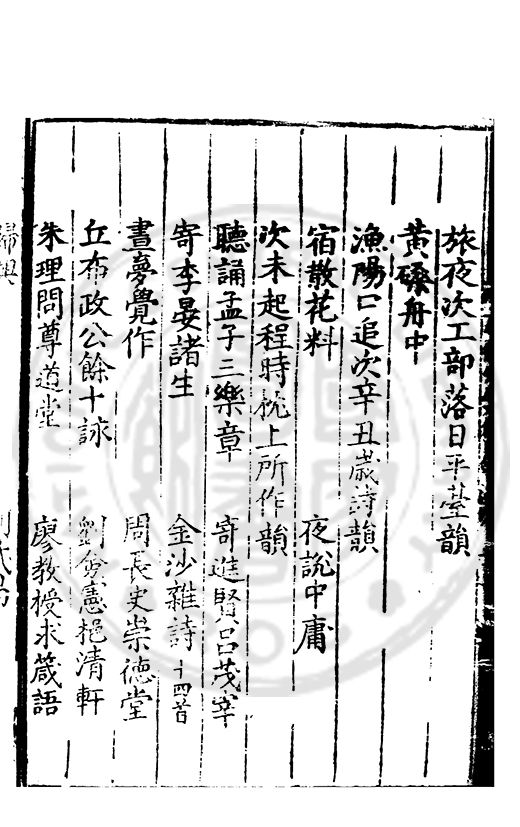 旅夜次工部落日平臺韻
黃磯舟中
漁陽口追次辛丑歲詩韻
宿散花料 夜說中庸
次未起程時枕上所作韻
聽誦孟子三樂章 寄進賢呂茂宰
寄李晏諸生 金沙雜詩 十四首
晝夢覺作 周長史崇德堂
丘布政公餘十詠 劉僉憲挹清軒
朱理問尊道堂 廖教授求箴語
歸與